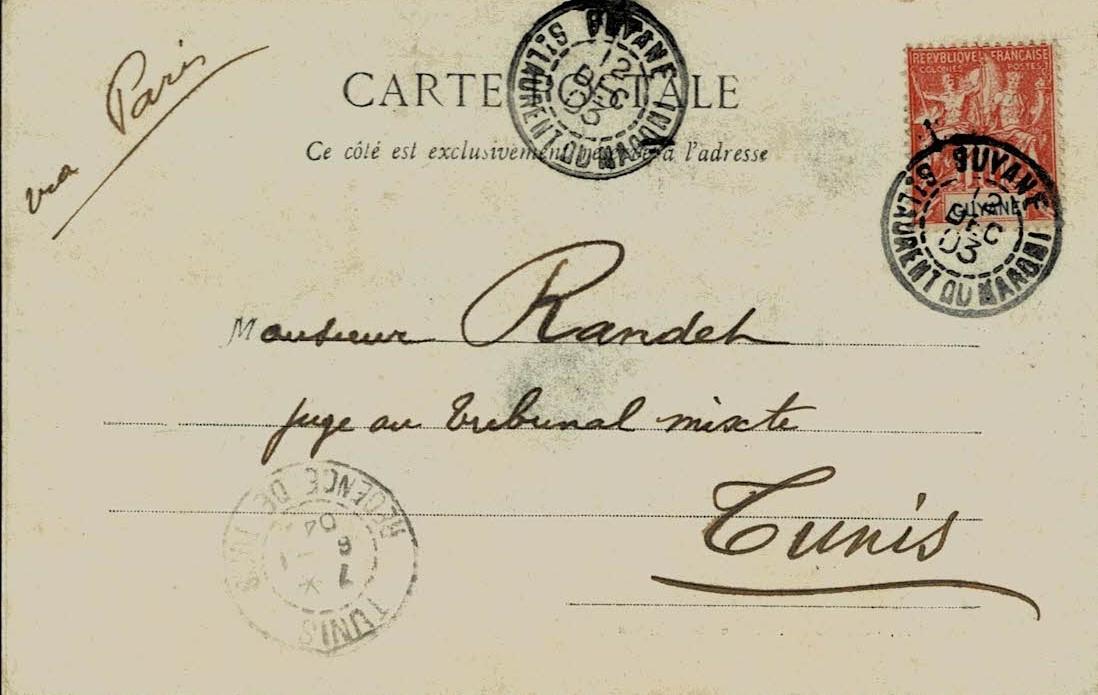 via Paris
CARTE POSTALE
Ce côté est exclusivement réservé à l'adresse
GUYANE
12
DEC
03
ST LAURENT DU MARONI
REPUBLIQUE FRANÇAISE
COLONIES POSTES
GUYANE
GUYANE
12
DEC
03
ST LAURENT DU MARONI
Monsieur Randet
juge au Tribunal mixte
Tunis
REGENCE DE TUNIS
TUNIS
04